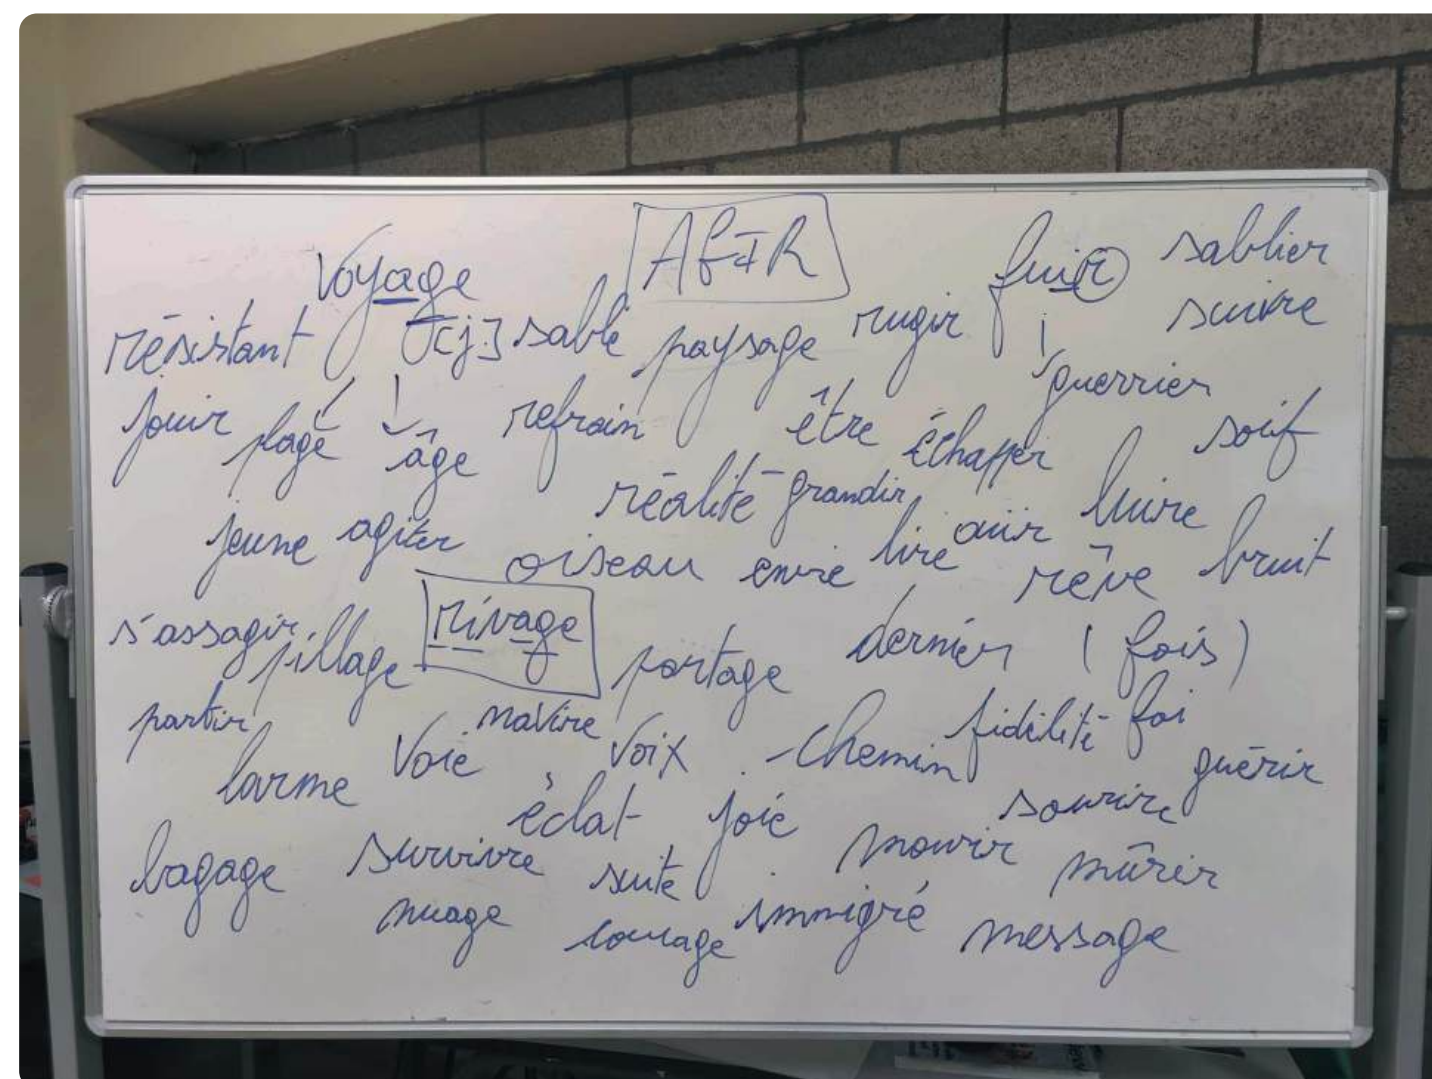 Voyage AFIR fuir sablier
résistant [j] sable paysage rugir suivre
guerrier
jouir plage âge refrain être échapper soif
réalité grandir
jeune agiter oiseau envie lire luire rêve bruit
s'assagir pillage rivage portage dernier (fois)
partir navire
larme voie voix chemin fidélité foi guérir
éclat joie sourire
bagage survivre suite mourir mûrir
nuage courage immigré message